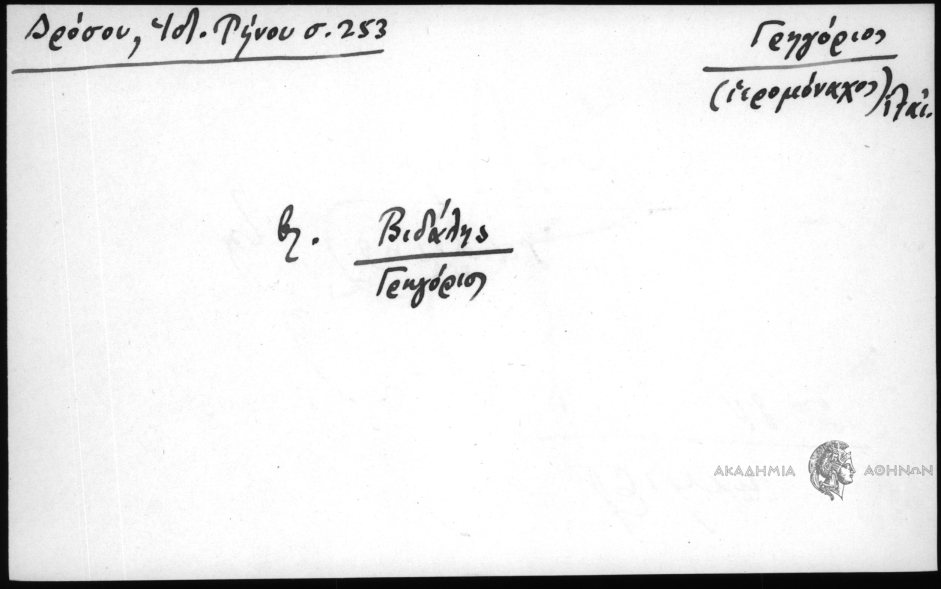 Δρόσου, Ἱστ. Τήνου σ. 253
Γρηγόριος
(ἱερομόναχος)
βλ. Βιδάλης
Γρηγόριος
ΑΚΑΔΗΜΙΑ ΑΘΗΝΩΝ